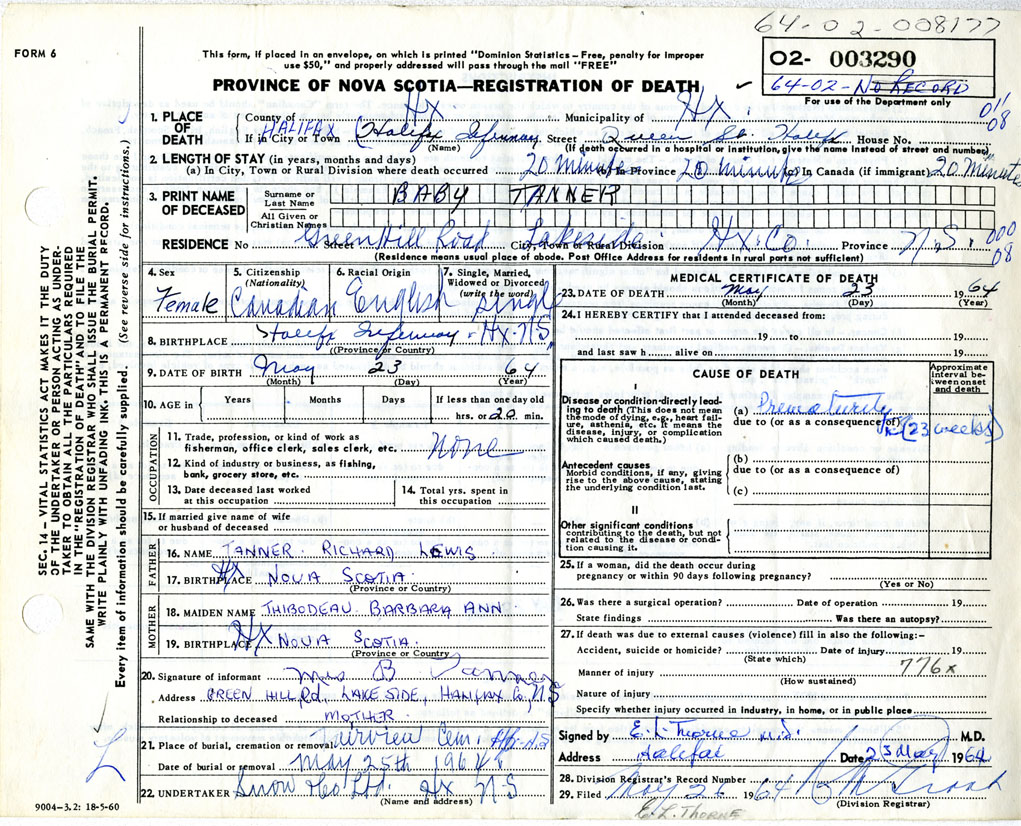 64-02-008177
FORM 6
This form, if placed in an envelope, on which is printed "Dominion Statistics – Free, penalty for improper
use $50," and properly addressed will pass through the mail "FREE"
02- 003290
64-02-NO RECORD
For use of the Department only
PROVINCE OF NOVA SCOTIA—REGISTRATION OF DEATH
011
08
1. PLACE OF DEATH
County of Hx Municipality of Hx.
If in City or Town HALIFAX (Halifax Infirmary Street Queen St. Halifx House No.
(Name) (If death occurred in a hospital or institution, give the name instead of street and number)
2. LENGTH OF STAY (in years, months and days)
(a) In City, Town or Rural Division where death occurred 20 Minute (b) In Province 20 minute (c) In Canada (if immigrant) 20 Minutes
3. PRINT NAME OF DECEASED
Surname or Last Name BABY TANNER
All Given or Christian Names
RESIDENCE No Street Green Hill Road City, Town or Rural Division Lakeside Hx. Co. Province N.S. 000
08
(Residence means usual place of abode. Post Office Address for residents in rural parts not sufficient)
4. Sex Female
5. Citizenship (Nationality) Canadian
6. Racial Origin English
7. Single, Married, Widowed or Divorced (write the word) Single
8. BIRTHPLACE Halifx Infirmary - Hx - N.S.
(Province or Country)
9. DATE OF BIRTH May 23 64
(Month) (Day) (Year)
10. AGE in Years Months Days If less than one day old
hrs. or 20 min.
OCCUPATION
11. Trade, profession, or kind of work as
fisherman, office clerk, sales clerk, etc. none
12. Kind of industry or business, as fishing,
bank, grocery store, etc.
13. Date deceased last worked
at this occupation
14. Total yrs. spent in
this occupation
15. If married give name of wife
or husband of deceased
FATHER
16. NAME TANNER RICHARD LEWIS
17. BIRTHPLACE Hx NOVA SCOTIA
(Province or Country)
MOTHER
18. MAIDEN NAME THIBODEAU BARBARA ANN
19. BIRTHPLACE Hx NOVA SCOTIA
(Province or Country)
20. Signature of informant Mrs B Tanner
Address GREEN HILL Rd, LAKESIDE, HALIFAX Co, N S
Relationship to deceased MOTHER
21. Place of burial, cremation or removal Fairview Cem. Hx. N.S
Date of burial or removal May 25th 1964
22. UNDERTAKER Snow Co Ltd. Hx N-S
(Name and address)
MEDICAL CERTIFICATE OF DEATH
23. DATE OF DEATH May 23 1964
(Month) (Day) (Year)
24. I HEREBY CERTIFY that I attended deceased from:
19 to 19
and last saw h alive on 19
CAUSE OF DEATH
Approximate interval between onset and death
I
Disease or condition directly leading to death (This does not mean the mode of dying, e.g., heart failure, asthenia, etc. It means the disease, injury, or complication which caused death.)
(a) Prematurity
due to (or as a consequence of) (23 weeks)
Antecedent causes
Morbid conditions, if any, giving rise to the above cause, stating the underlying condition last.
(b)
due to (or as a consequence of)
(c)
II
Other significant conditions
contributing to the death, but not related to the disease or condition causing it.
25. If a woman, did the death occur during
pregnancy or within 90 days following pregnancy?
(Yes or No)
26. Was there a surgical operation? Date of operation 19
State findings Was there an autopsy?
27. If death was due to external causes (violence) fill in also the following:–
Accident, suicide or homicide? Date of injury 19
(State which)
776x
Manner of injury
(How sustained)
Nature of injury
Specify whether injury occurred in industry, in home, or in public place
Signed by E. L. Thorne M.D. M.D.
Address Halifax Date 23 May 1964
28. Division Registrar's Record Number
29. Filed May 26 1964
(Division Registrar)
E. L. THORNE
SEC. 14 – VITAL STATISTICS ACT MAKES IT THE DUTY
OF THE UNDERTAKER OR PERSON ACTING AS UNDER-
TAKER TO OBTAIN ALL THE PARTICULARS REQUIRED
IN THE "REGISTRATION OF DEATH" AND TO FILE THE
SAME WITH THE DIVISION REGISTRAR WHO SHALL ISSUE THE BURIAL PERMIT.
WRITE PLAINLY WITH UNFADING INK. THIS IS A PERMANENT RECORD.
Every item of information should be carefully supplied. (See reverse side for instructions.)
9004–3.2: 18-5-60